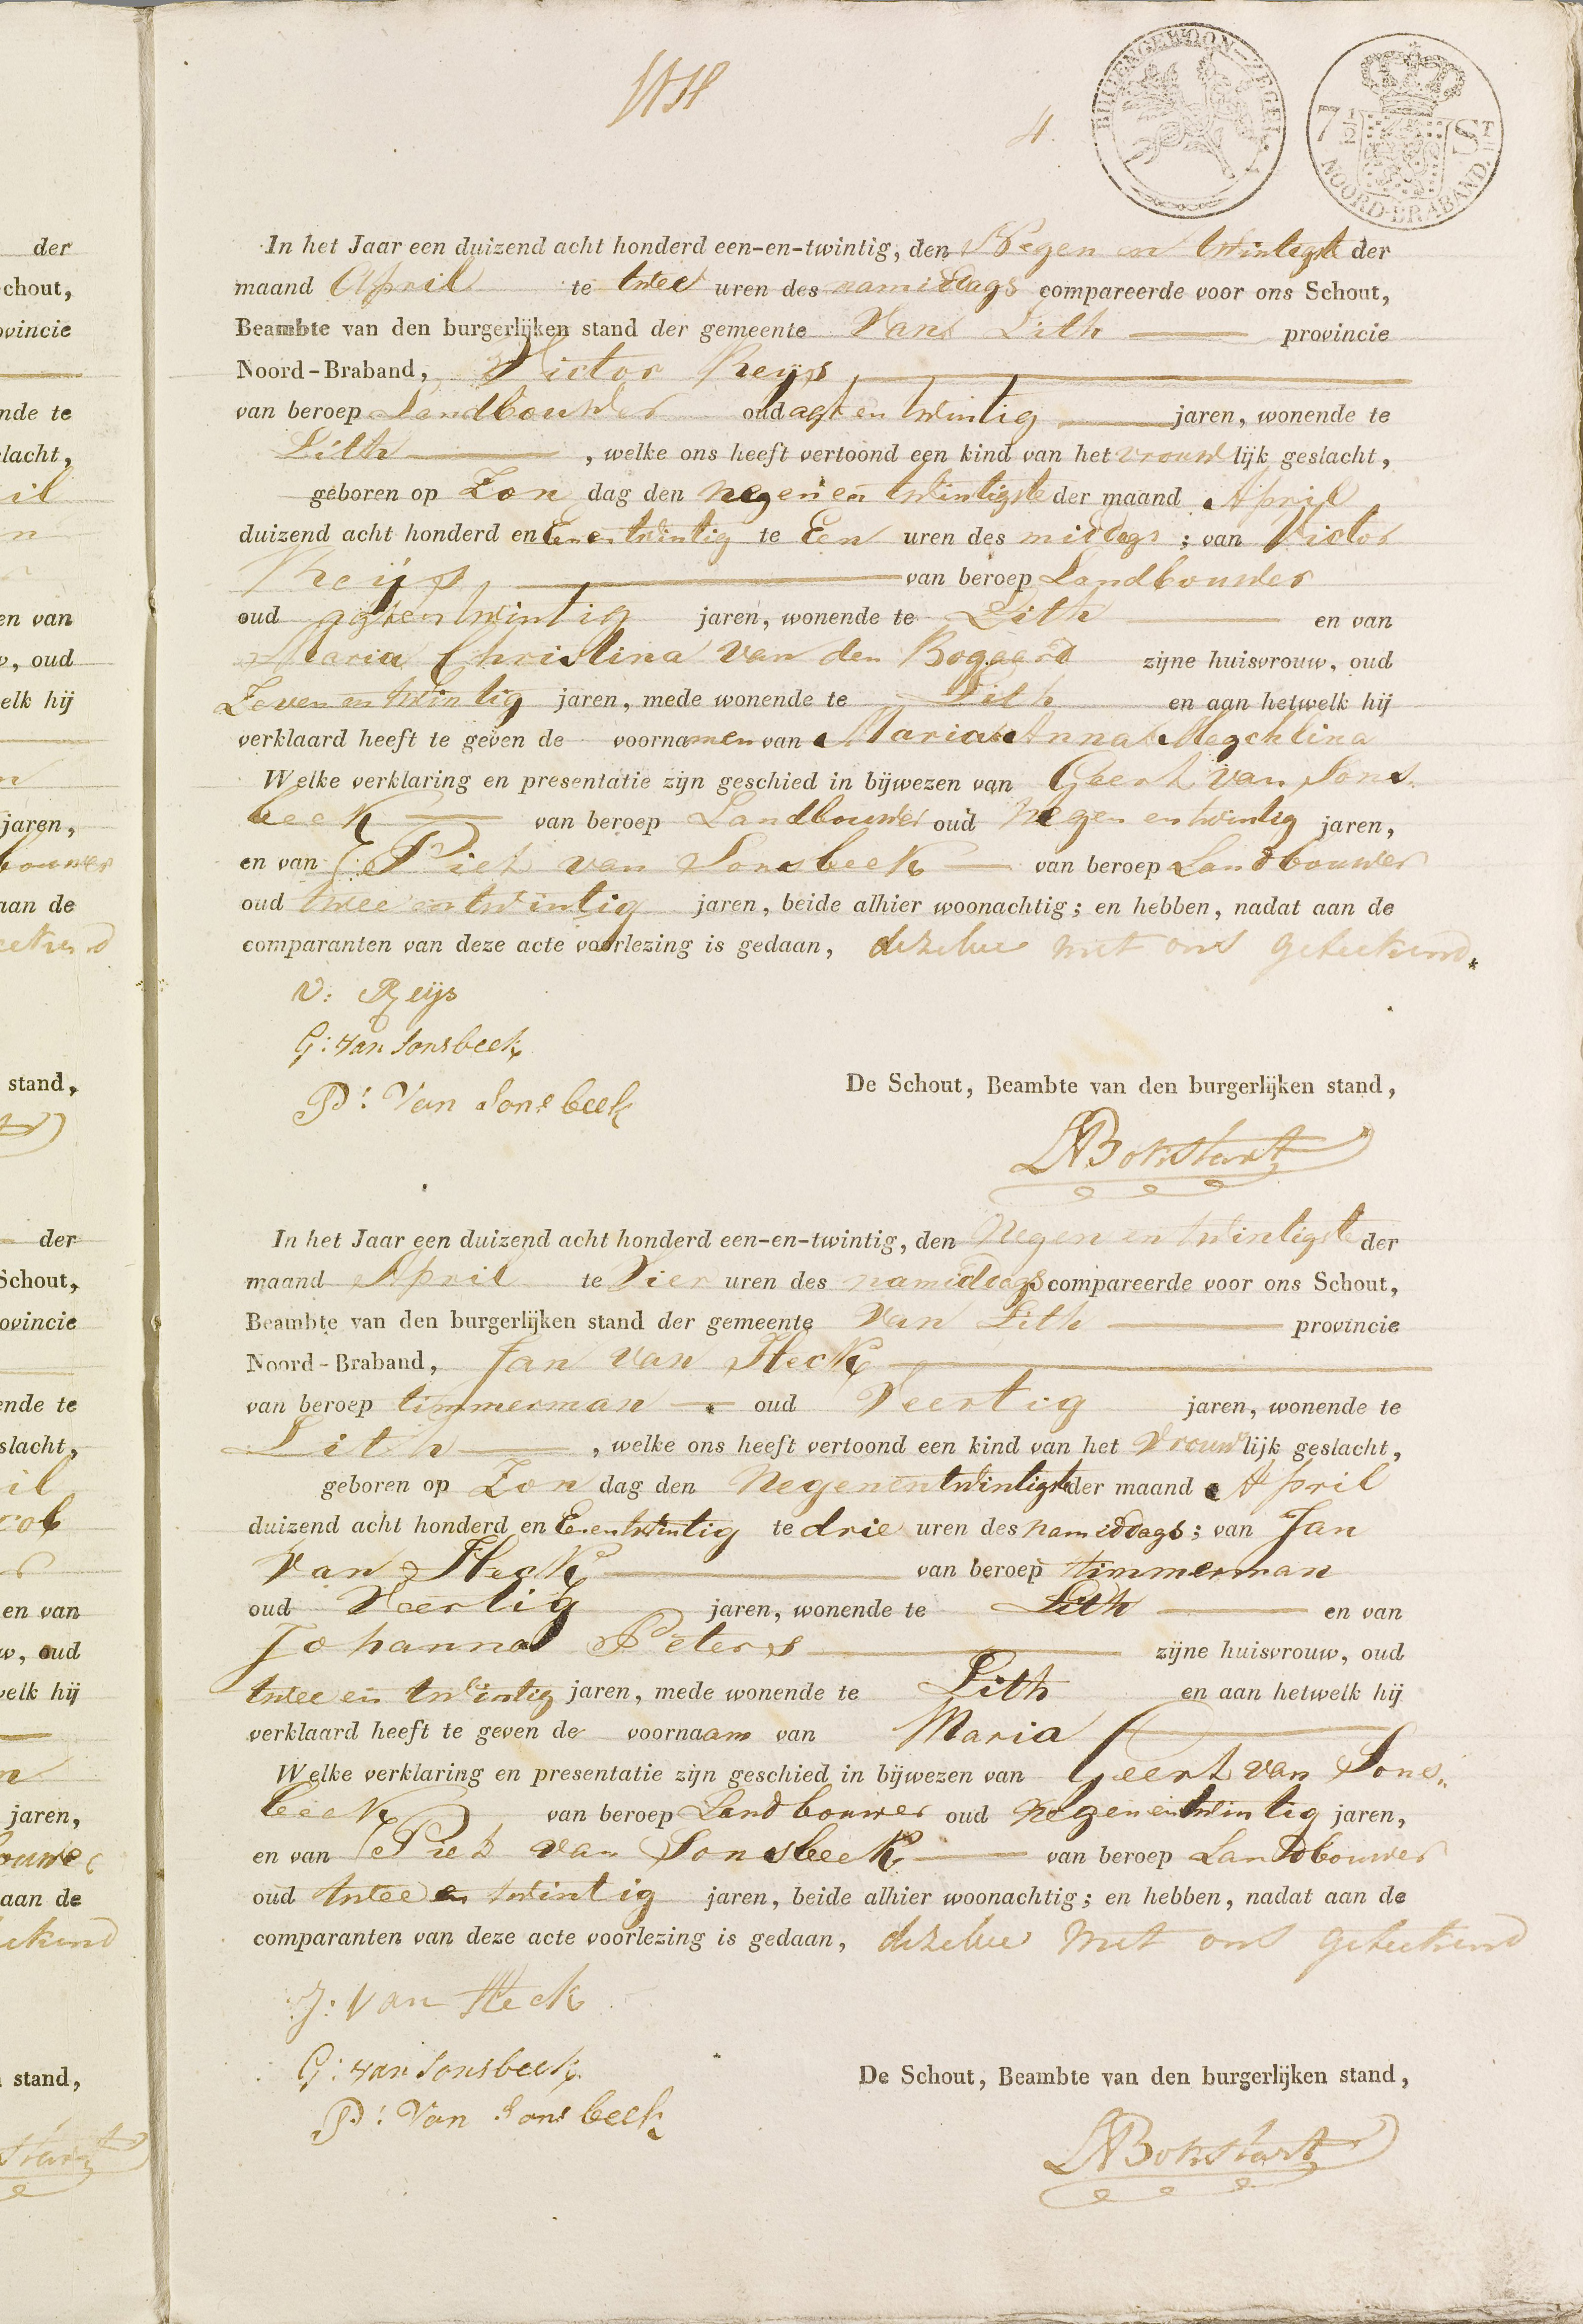 4.
BUITENGEWOON-ZEGEL.
7 1/2 ST
NOORD-BRABAND.
In het Jaar een duizend acht honderd een-en-twintig, den Negen en twintigste der
maand April te twee uren des namiddags compareerde voor ons Schout,
Beambte van den burgerlijken stand der gemeente Van Lith provincie
Noord-Braband, Victor Reijs
van beroep Landbouwer oud agt en twintig jaren, wonende te
Lith, welke ons heeft vertoond een kind van het vrouwlijk geslacht,
geboren op Zon dag den negen en twintigste der maand April
duizend acht honderd en Een en twintig te Een uren des middags; van Victor
Reijs van beroep Landbouwer
oud agt en twintig jaren, wonende te Lith en van
Maria Christina van den Bogaard zijne huisvrouw, oud
Zeven en twintig jaren, mede wonende te Lith en aan hetwelk hij
verklaard heeft te geven de voornamen van Maria Anna Megchlina
Welke verklaring en presentatie zijn geschied in bijwezen van Geert van Sons-
beek van beroep Landbouwer oud Negen en twintig jaren,
en van Piet van Sonsbeek van beroep Landbouwer
oud twee en twintig jaren, beide alhier woonachtig; en hebben, nadat aan de
comparanten van deze acte voorlezing is gedaan, dezelve met ons geteekend.
V: Reijs
G: van Sonsbeek
P: Van Sonsbeek
De Schout, Beambte van den burgerlijken stand,
In het Jaar een duizend acht honderd een-en-twintig, den Negen en twintigste der
maand April te Vier uren des namiddags compareerde voor ons Schout,
Beambte van den burgerlijken stand der gemeente Van Lith provincie
Noord-Braband, Jan van Heck
van beroep timmerman oud Veertig jaren, wonende te
Lith, welke ons heeft vertoond een kind van het Vrouwlijk geslacht,
geboren op Zon dag den Negen en twintigste der maand April
duizend acht honderd en Een en twintig te drie uren des namiddags; van Jan
Van Heck van beroep timmerman
oud Veertig jaren, wonende te Lith en van
Johanna Peters zijne huisvrouw, oud
twee en twintig jaren, mede wonende te Lith en aan hetwelk hij
verklaard heeft te geven de voornaam van Maria
Welke verklaring en presentatie zijn geschied in bijwezen van Geert van Sons-
beek van beroep Landbouwer oud Negen en twintig jaren,
en van Piet van Sonsbeek van beroep Landbouwer
oud twee en twintig jaren, beide alhier woonachtig; en hebben, nadat aan de
comparanten van deze acte voorlezing is gedaan, dezelve met ons geteekend
J: van Heck
G: van Sonsbeek
P: Van Sonsbeek
De Schout, Beambte van den burgerlijken stand,